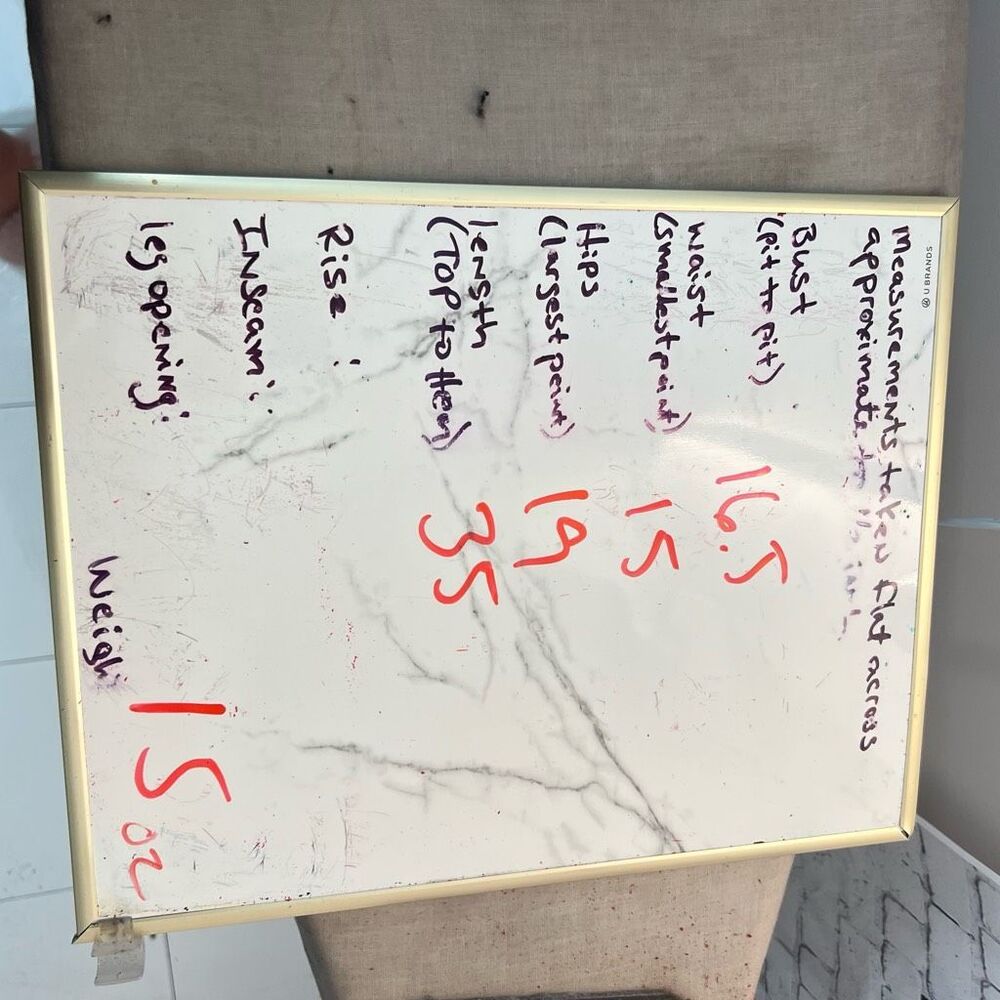 U BRANDS
Measurements taken flat across
approximate to
Bust 16.5
(pit to pit)
Waist 15
(smallest point)
Hips 19
(largest point)
length 35
(Top to Hem)
Rise :
Inseam:
leg opening:
Weight 15 oz